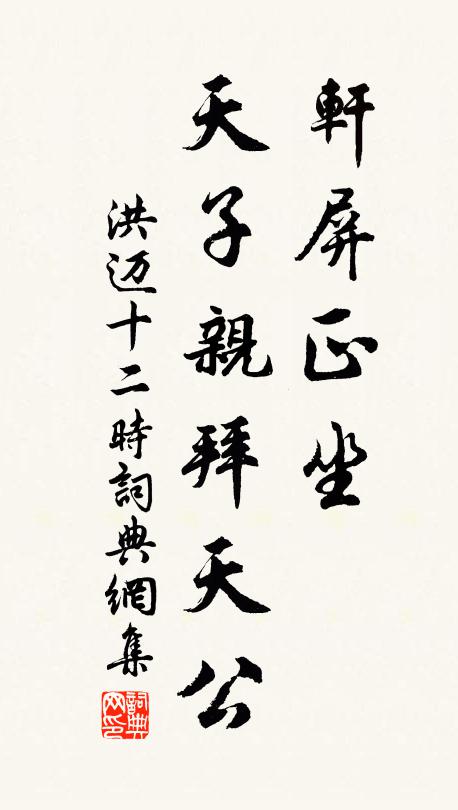 軒屏正坐
天子親拜天公
洪迈十二時詞典網集
詞典网印